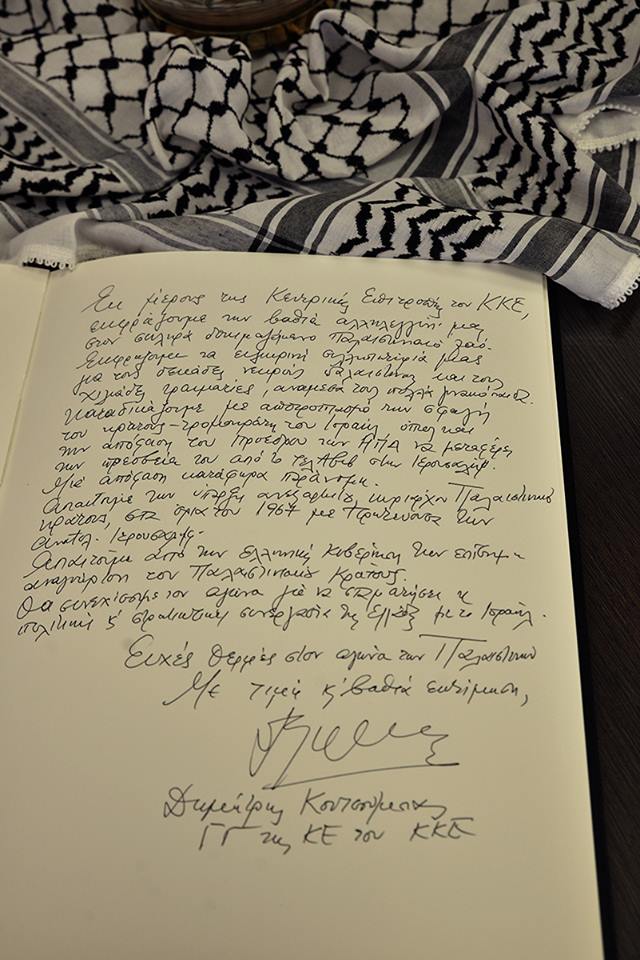 Εκ μέρους της Κεντρικής Επιτροπής του ΚΚΕ,
εκφράζουμε την βαθιά αλληλεγγύη μας
στον σκληρά δοκιμαζόμενο Παλαιστινιακό λαό.
Εκφράζουμε τα ειλικρινή συλλυπητήρια μας
για τους δεκάδες νεκρούς Παλαιστίνιους και τους
χιλιάδες τραυματίες, ανάμεσά τους πολλά γυναικόπαιδα.
Καταδικάζουμε με αποτροπιασμό την σφαγή
του κράτους-τρομοκράτη του Ισραήλ όπως και
την απόφαση του Προέδρου των ΗΠΑ να μεταφέρει
την πρεσβεία του από το Τελ Αβίβ στην Ιερουσαλήμ.
Μια απόφαση κατάφωρα παράνομη.
Απαιτούμε την ύπαρξη ανεξάρτητου, κυρίαρχου Παλαιστινιακού
κράτους, στα όρια του 1967 με Πρωτεύουσα την
Ανατολ. Ιερουσαλήμ.
Απαιτούμε από την ελληνική Κυβέρνηση την επίσημη
αναγνώριση του Παλαιστινιακού Κράτους.
Θα συνεχίσουμε τον αγώνα για να σταματήσει η
πολιτική κ' στρατιωτική συνεργασία της Ελλάδας με το Ισραήλ.
Ευχές θερμές στον αγώνα των Παλαιστινίων
Με τιμή κ' βαθιά εκτίμηση,
Δημήτρης Κουτσούμπας
ΓΓ της ΚΕ του ΚΚΕ